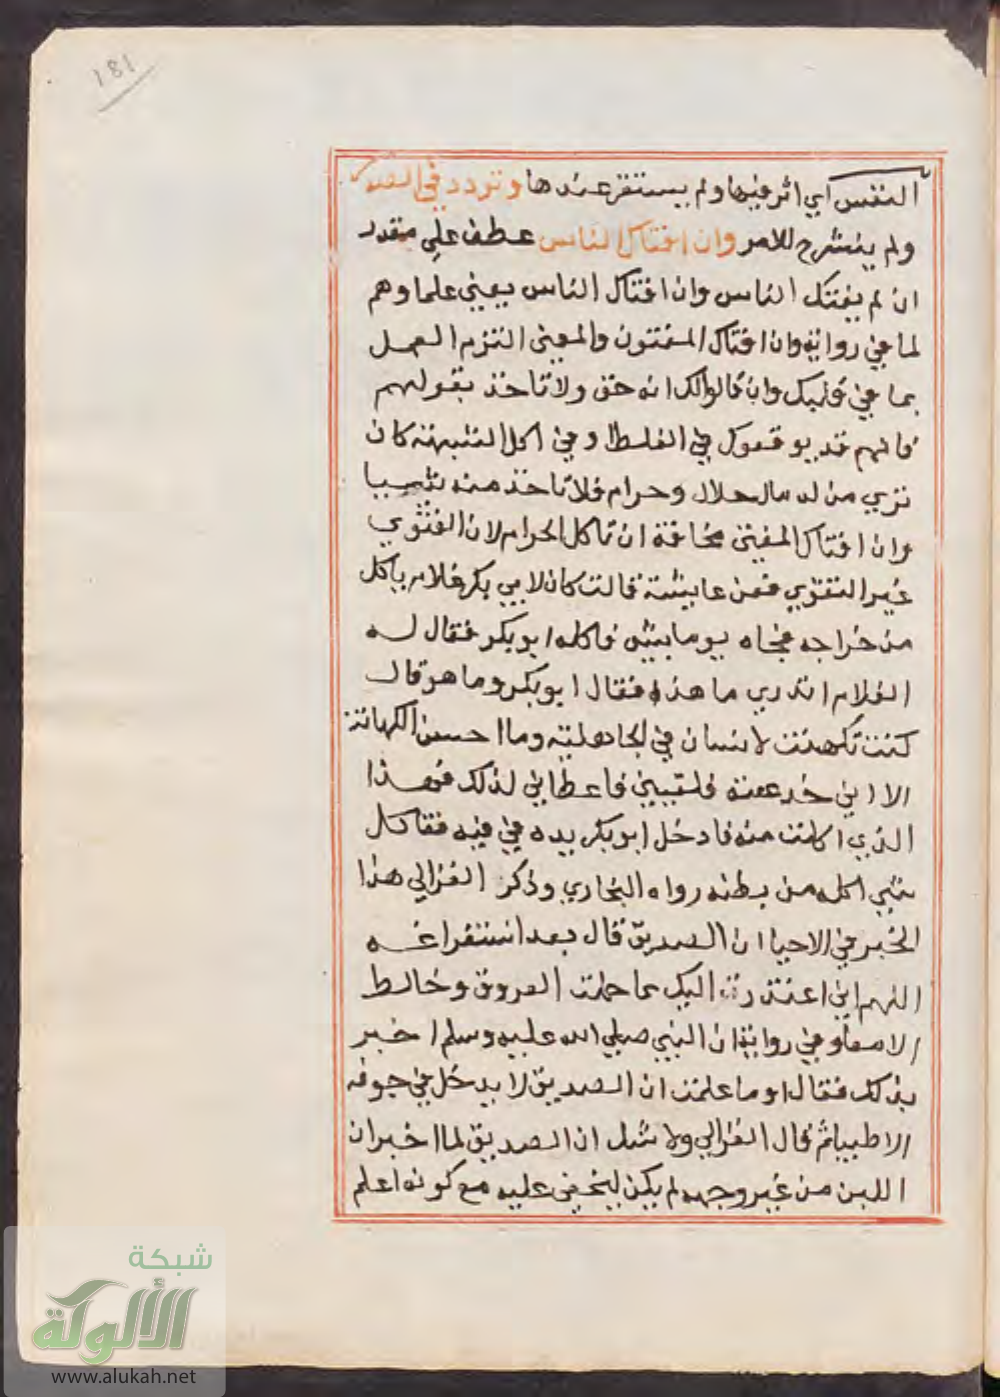 ١٨١
النفس اي اثر فيها ولم يستقر عندها وتردد في الصدر
ولم ينشرح للامر وان افتاك الناس عطف على مقدر
ان لم يفتك الناس وان افتاك الناس يعني علماوهم
لما في رواية وان افتاك المفتون والمعنى التزم العمل
بما في قلبك وان قالوا لك انه حق ولا تاخذ بقولهم
فانهم قد يوقعوك في الغلط او في اكل الشبهة كان
تري من له مال حلال وحرام فلا تاخذ منه شيا
وان افتاك المفتي مخافة ان تاكل الحرام لان الفتوي
غير التقوي فعن عايشة قالت كان لابي بكر غلام ياكل
من خراجه فجاه يوما بشي فاكله ابو بكر فقال له
الغلام اتدري ما هذا فقال ابو بكر وما هو قال
كنت تكهنت لانسان في الجاهلية وما احسن الكهانة
الا اني خدعته فلقيني فاعطاني لذلك فهذا
الذي اكلت منه فادخل ابو بكر يده في فيه فقا كل
شي اكله من بطنه رواه البخاري وذكر الغزالي هذا
الخبر في الاحيا ان الصديق قال بعد استفراغه
اللهم اني اعتذرت اليك مما حملت العروق وخالط
الامعا وفي رواية ان النبي صلي الله عليه وسلم اخبر
بذلك فقال اوما علمت ان الصديق لا يدخل في جوفه
الا طيبا ثم قال الغزالي ولا شك ان الصديق لما اخبر ان
اللبن من غير وجهه لم يكن ليخفي عليه مع كونه اعلم
شبكة
الألوكة
www.alukah.net